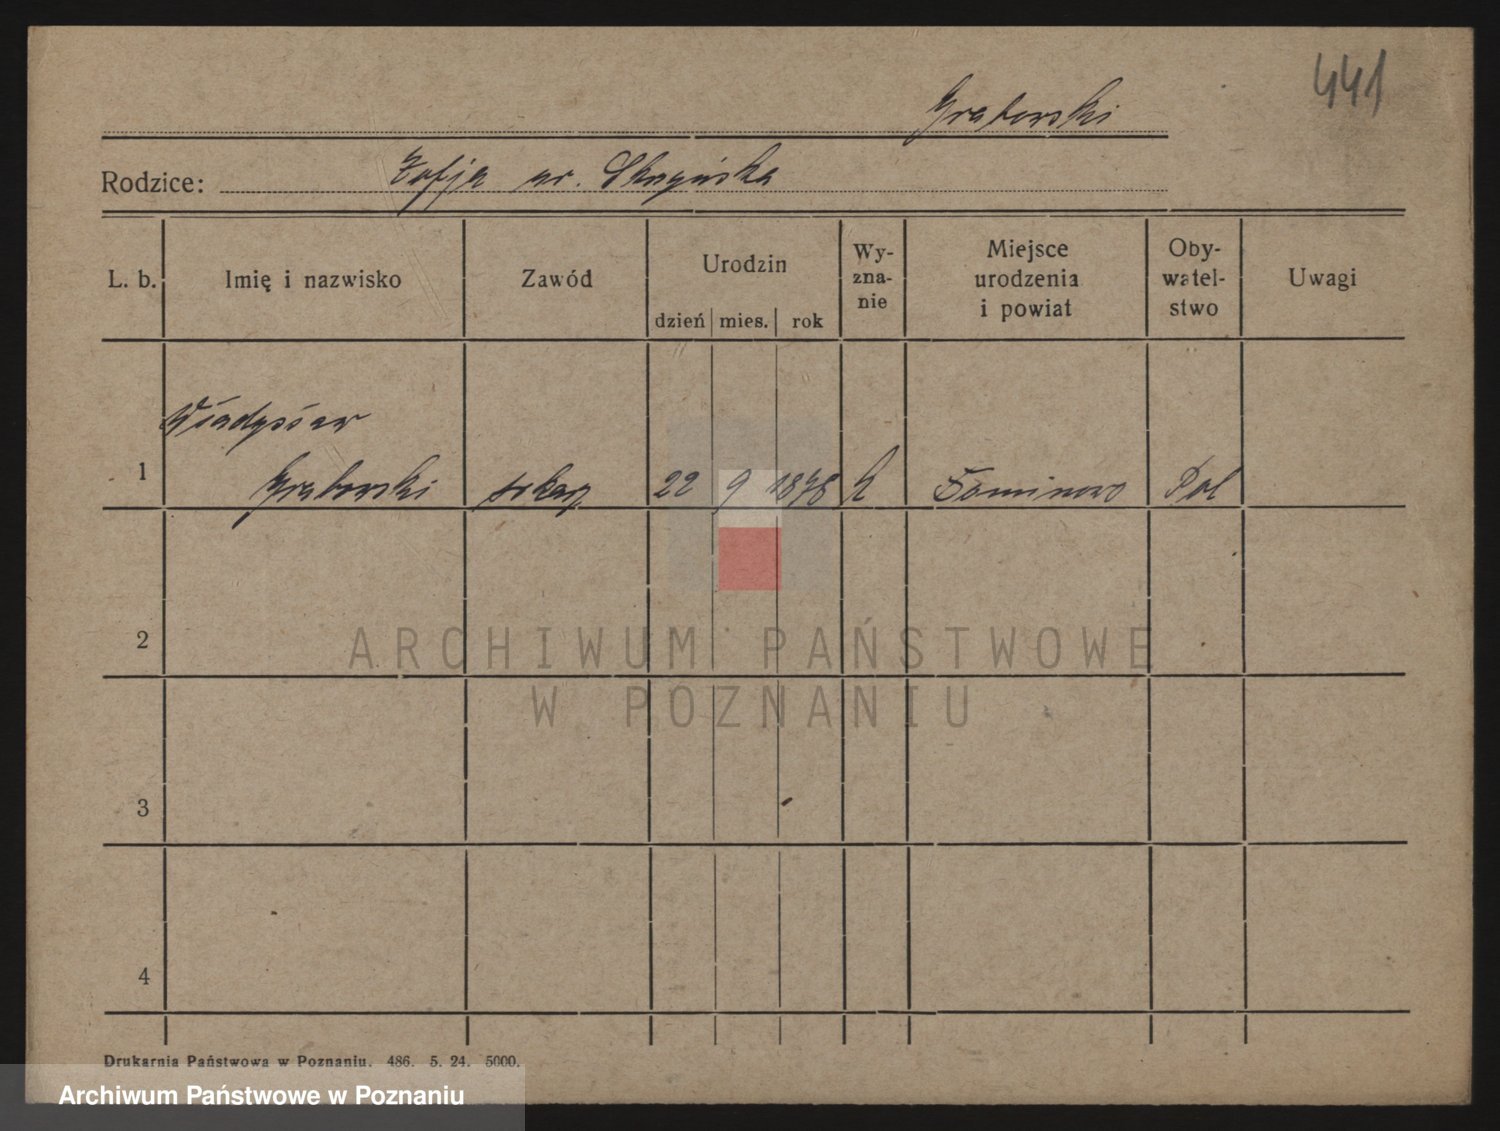 441
Grabowski
Rodzice: Zofja ur.
L. b. Imię i nazwisko Zawód Urodzin dzień mies. rok Wy-zna-nie Miejsce urodzenia i powiat Oby-watel-stwo Uwagi
Władysław
1 Grabowski 22 9 1878 k Pol
2
ARCHIWUM PAŃSTWOWE
W POZNANIU
3
4
Drukarnia Państwowa w Poznaniu. 486. 5. 24. 5000.
Archiwum Państwowe w Poznaniu